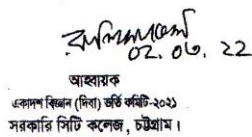 02.03.22
আহবায়ক
একাদশ বিজ্ঞান (দিবা) ভর্তি কমিটি-২০২১
সরকারি সিটি কলেজ, চট্টগ্রাম।